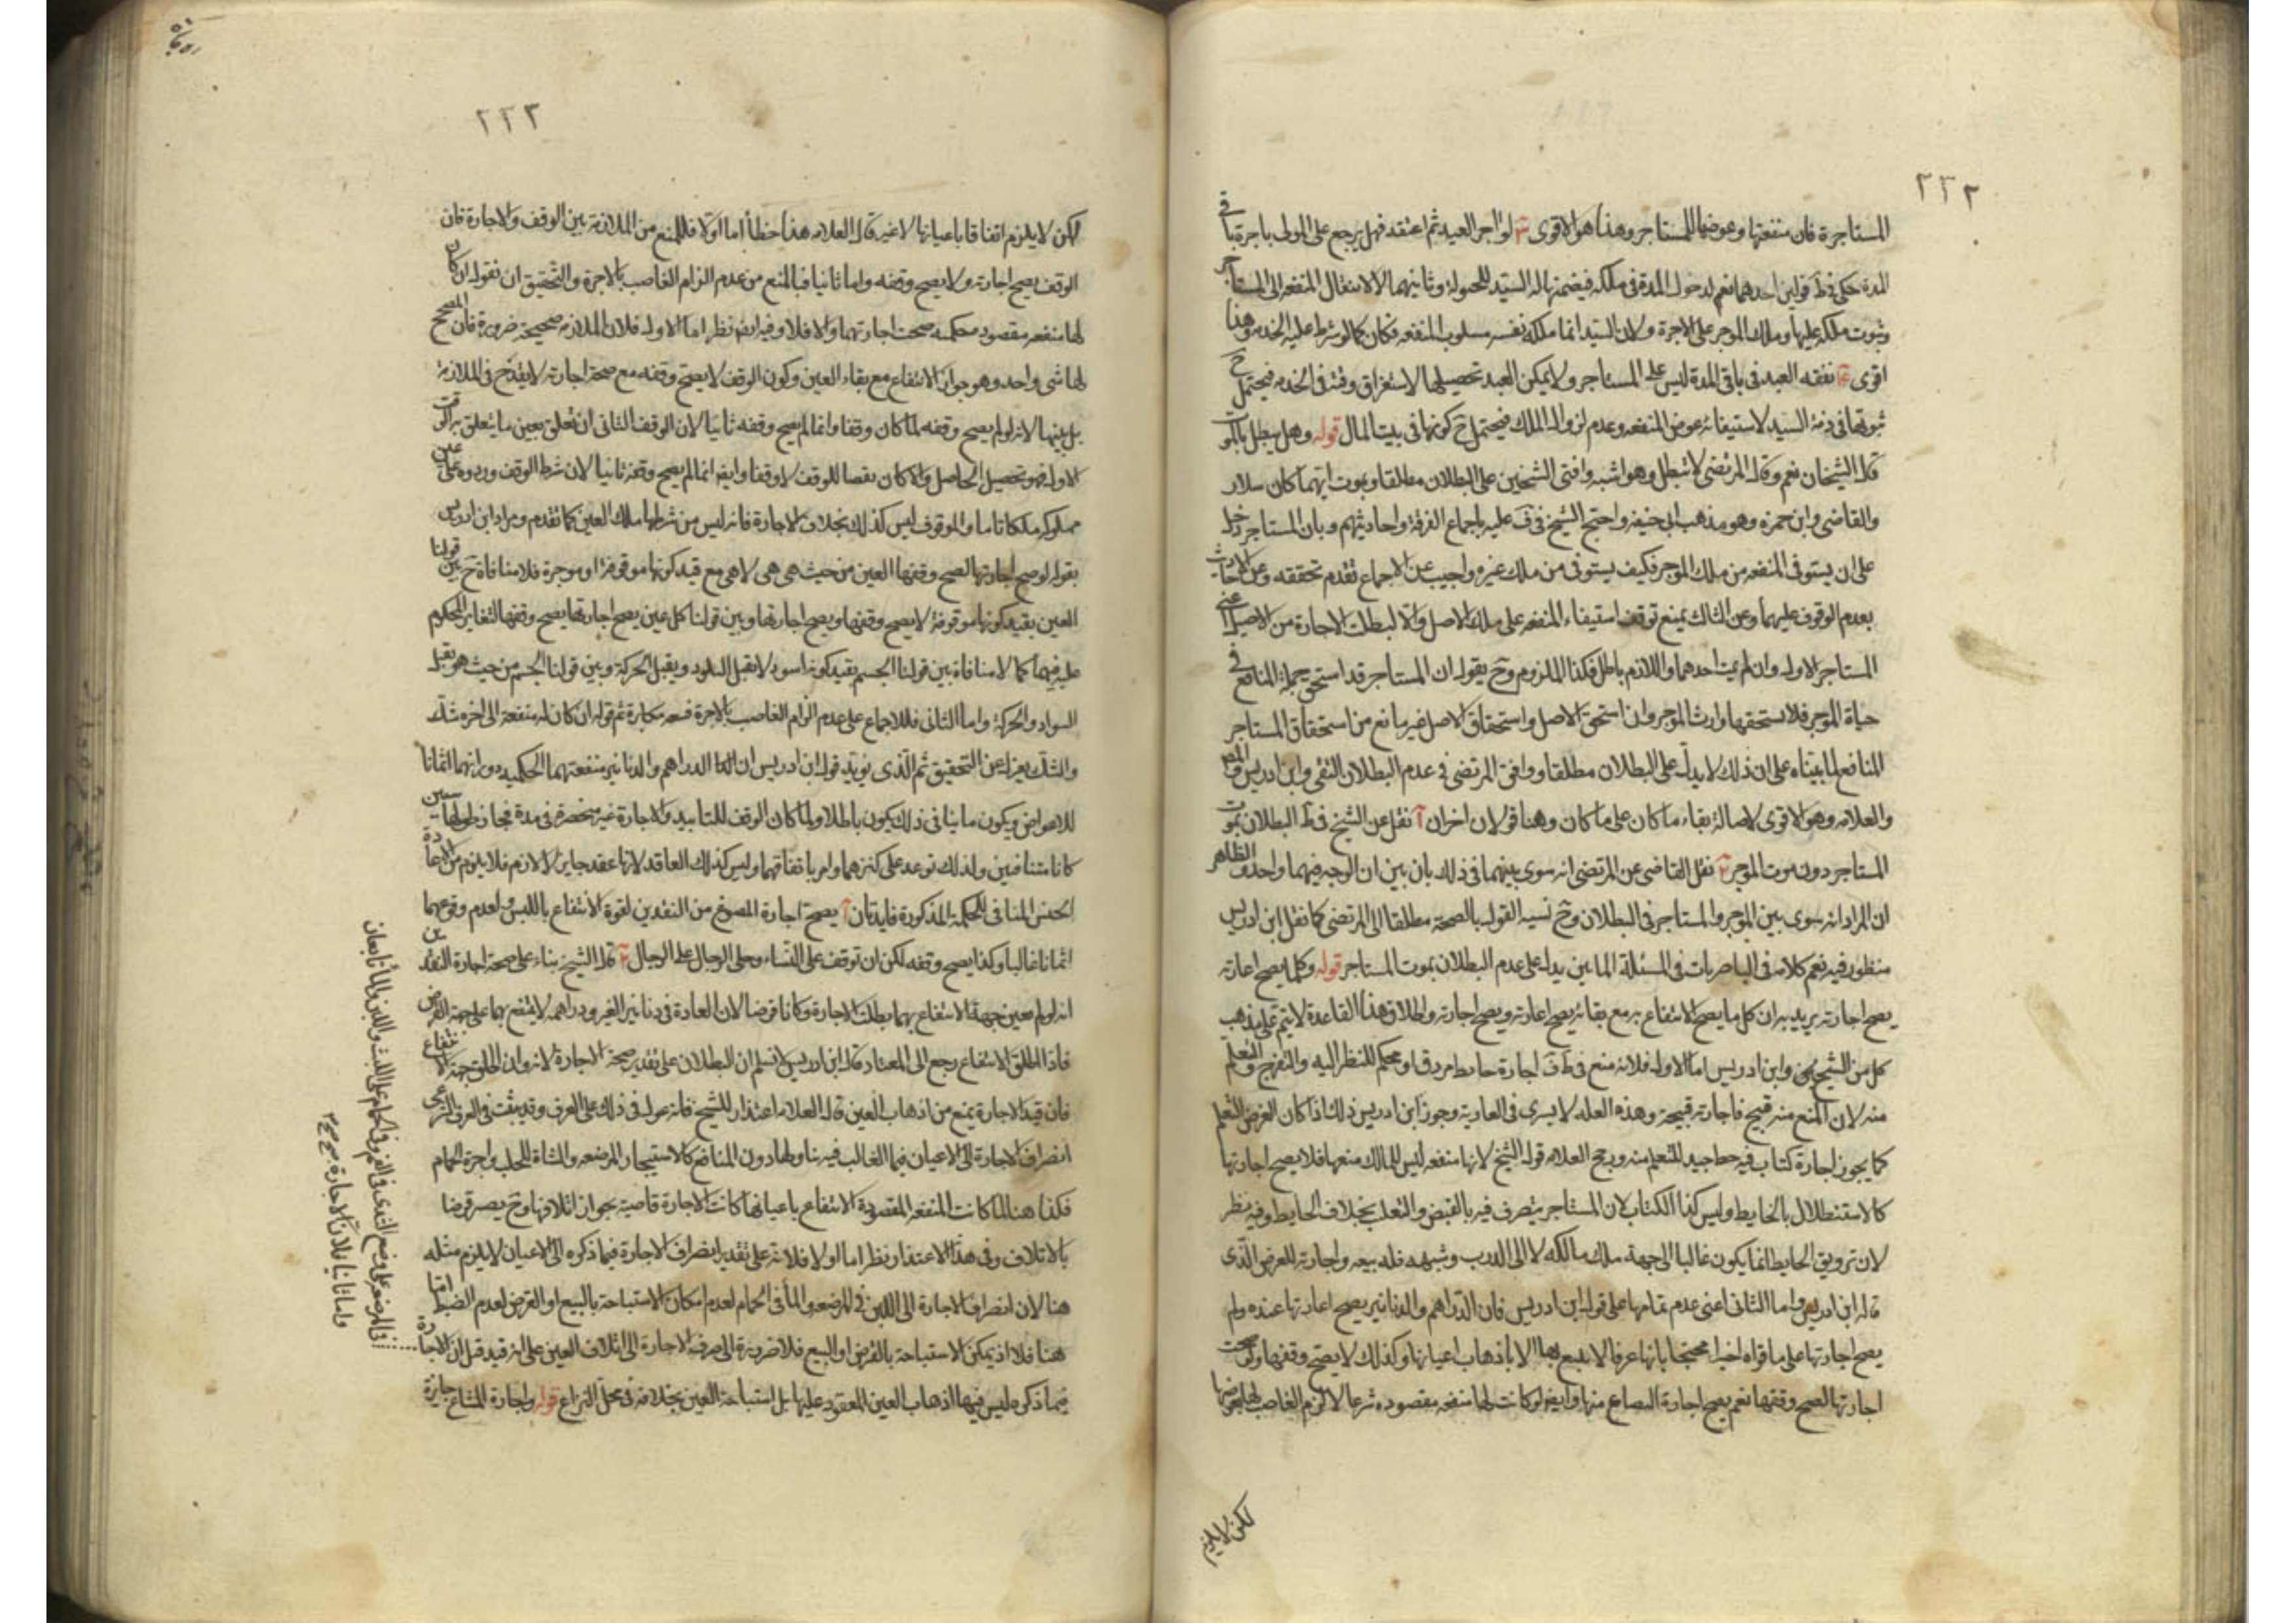 ٢٣٢
المستاجرة فان منفعتها وعوضها للمستاجر وهذا هو الاقوى ٣ لو اجر العبد ثم اعتقه فهل يرجع على المولى باجرة باقى
المدة حكى فى ط قولين احدهما نعم لدخول المدة فى ملكه فيضمنها له السيد للحيلولة وثانيهما لا لانتقال المنفعه الى المستاجر
وثبوت ملكه عليها وملك الموجر على الاجرة ولان السيد انما ملكه نفسه مسلوب المنفعه فكان كما لو شرط عليه الخدمه وهذا
اقوى ٤ نفقه العبد فى باقى المدة ليس على المستاجر ولا يمكن العبد تحصيلها لاستغراق وقته فى الخدمه فيحتمل ح
ثبوتها فى ذمة السيد لاستيفائه عوض المنفعه وعدم لزواله الملك فيحتمل ح كونها فى بيت المال قوله وهل يبطل بالموت
قال الشيخان نعم وقال المرتضى لا تبطل وهو اشبه وافتى الشيخين على البطلان مطلقا وبموت ايهما كان سلار
والقاضى وابن حمزه وهو مذهب ابى حنيفه واحتج الشيخ فى ف عليه باجماع الفرقة واحاديثهم وبان المستاجر دخل
على ان يستوفى المنفعه من ملك الموجر فكيف يستوفى من ملك غيره واجيب عن الاجماع تقدم تحققه وعن الاحاديث
بعدم الوقوف عليها وعن الثالث بمنع توقف استيفاء المنفعه على ملك الاصل والا لبطلت الاجارة من الاصيل اعنى
المستاجر الاول وان لم يمت احدهما واللازم باطل فكذا الملزوم وح يقول ان المستاجر قد استحق جملة المنافع فى
حياة الموجر فلا يستحقها وارث الموجر وان استحق الاصل واستحقاق الاصل غير مانع من استحقاق المستاجر
المنافع لما بيناه على ان ذلك لا يدل على البطلان مطلقا ووافق المرتضى فى عدم البطلان التقى وابن ادريس والمص
والعلامه وهو الاقوى لاصالة بقاء ما كان على ما كان وهنا قولان اخران آ نقل عن الشيخ فى ط البطلان بموت
المستاجر دون موت الموجر ٢ نقل القاضى عن المرتضى انه سوى بينهما فى ذلك بان بين ان الوجه فيهما واحد والظاهر
ان المراد انه سوى بين الموجر والمستاجر فى البطلان وح نسبه القول بالصحة مطلقا الى المرتضى كما نقل ابن ادريس
منظور فيه نعم كلامه فى الناصريات فى المسئلة المابين يدل على عدم البطلان بموت المستاجر قوله وكلما يصح اعارته
يصح اجارته يريد به ان كل ما يصح الانتفاع به مع بقائه يصح اعارته ويصح اجارته واطلاق هذا القاعدة لا يتم على مذهب
كل من الشيخ وابن ادريس اما الاول فلانه منع فى ط ف اجارة حايط مزوق او محكم للنظر اليه والتفرج والتعلم
منه لان المنع منه قبيح فاجارته قبيحة وهذه العله لا يسرى فى العارية وجوز ابن ادريس ذلك اذا كان الغرض التعلم
كما يجوز اجارة كتاب فيه خط جيد للتعلم منه ورجح العلامه قول الشيخ لانها منفعه ليس للمالك منعها فلا يصح اجارتها
كالاستظلال بالحايط وليس كذا الكتاب لان المستاجر يتصرف فيه بالقبض والتقليب بخلاف الحايط وفيه نظر
لان تزويق الحايط انما يكون غالبا الى جهة ملك مالكه لا الى الدرب وشبهه فله بيعه واجارته للعرض الذى
قاله ابن ادريس واما الثانى اعنى عدم تمامها على قول ابن ادريس فان الدراهم والدنانير يصح اعارتها عنده ولم
يصح اجارتها على ما قراه اخيرا محتجا بانها عرفا لا ينتفع بها الا باذهاب اعيانها وكذلك لا يصح وقفها ولو صحت
اجارتها لصح وقفها نعم يصح اجارة المصاع منها وايضا لو كانت لها منفعه مقصوده شرعا لالزم الغاصب لها
لكن لا يلزم
٢٣٣
لكن لا يلزم اتفاقا باعيانها لا غير قال العلامه هذا خطأ اما اولا فللمنع من الملازمة بين الوقف والاجارة فان
الوقف يصح اجارته ولا يصح وقفه واما ثانيا فبالمنع من عدم الزام الغاصب بالاجرة والتحقيق ان نقول ان كان
لها منفعه مقصوده محكمه صحت اجارتهما والا فلا وفيه ايضا نظر اما الاول فلان الملازمه صحيحة ضرورة فان المصحح
لها شى واحد وهو جواز الانتفاع مع بقاء العين وكون الوقف لا يصح وقفه مع صحة اجارته لا يقدح فى الملازمة
بل يبينها لانه لو لم يصح وقفه لما كان وقفا وانما لم يصح وقفه ثانيا لان الوقف الثانى ان تعلق بعين ما يتعلق به الوقف
الاول فهو تحصيل الحاصل والا كان نقصا للوقف لا وقفا وايضا انما لم يصح وقفه ثانيا لان شرط الوقف وروده على عين
مملوكه ملكا تاما والموقوف ليس كذلك بخلاف الاجارة فانه ليس من شرطها ملك العين كما تقدم ومراد ابن ادريس
بقوله لو صح اجارتها لصح وقفها العين من حيث هى هى لا هى مع قيد كونها موقوفة او موجرة فلا منافاة ح بين قولنا
العين بقيد كونها موقوفة لا يصح وقفها ويصح اجارتها وبين قولنا كل عين يصح اجارتها يصح وقفها لتغاير المحكوم
عليه فيهما كما لا منافاة بين قولنا الجسم بقيد كونه اسود لا تقبل السواد ويقبل الحركة وبين قولنا الجسم من حيث هو يقبل
السواد والحركة واما الثانى فللاجماع على عدم الزام الغاصب بالاجرة فمنعه مكابرة ثم قوله ان كان له منفعة الى اخره شك
والشك بمعزل عن التحقيق ثم الذى يويد قول ابن ادريس ان الدراهم والدنانير منفعتهما الحكميه دورانهما اثمانا
للاعواض ويكون ما ينافى ذلك يكون باطلا ولما كان الوقف للتابيد والاجارة غير منحصرة فى مدة فجاز طولها سنين
كانا متنافيين ولذلك توعد على كنزهما وامر بانفاقهما وليس كذلك العاقد لانها عقد جايز لا لازم فلا يلزم من الاعادة
الحبس المنافى للحكمة المذكورة فايدتان آ يصح اجارة المصوغ من النقدين لقوة الانتفاع باللبس ولعدم وقوعهما
اثمانا غالبا وكذا يصح وقفه لكن ان توقف على النساء وحلى الرجال على الرجال ٢ قال الشيخ بناء على صحة اجارة النقدين
انه لو لم يعين جهة الانتفاع بهما بطلت الاجارة وكانا قرضا لان العادة فى دنانير الغير ودراهمه لا ينتفع بهما على جهة القرض
فاذا اطلق الانتفاع رجع الى المعتاد قال ابن ادريس لا نسلم ان البطلان على تقدير صحة الاجارة لانه وان اطلق جهة الانتفاع
فان قيد الاجارة يمنع من اذهاب العين قال العلامه اعتذار للشيخ فانه عول فى ذلك على العرف وقد يثبت فى العرف الشرعى
انصراف الاجارة الى الاعيان فيما الغالب فيه تناولها دون المنافع كالاستيجار المرضعه والشاة للحلب واجرة الحمام
فكذا هنا لما كانت المنفعه المقصودة الانتفاع باعيانها كانت الاجارة قاضية بجواز اتلافها وح يصير قرضا
بالاتلاف وفى هذا الاعتذار نظر اما اولا فلانه على تقدير انصراف الاجارة فيما ذكره الى الاعيان لا يلزم مثله
هنا لان انصراف الاجارة الى اللبن فى المرضعه والماء فى الحمام لعدم امكان الاستباحة بالبيع او القرض لعدم الضبط اما
هنا فلا اذ يمكن الاستباحة بالقرض او البيع فلا ضرورة الى صرف الاجارة الى اتلاف العين على انه قيد قبل ان الاجارة
فيما ذكره ليس فيها اذهاب العين المعقود عليها بل استباحة العين بخلافه فى محل النزاع قوله واجارة المشاع جائزة
فى المرضعه على وضع الثدى فى الفم وفى الحمام على اللبث واللبن والماء تابعان
واما ثانيا فلان الاجارة صح صح